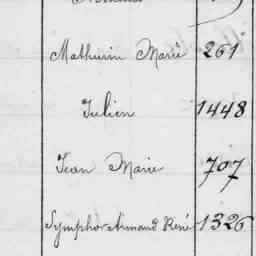 Mathurin Marie 261
Julien 1448
Jean Marie 707
Symphor Armand René 1326